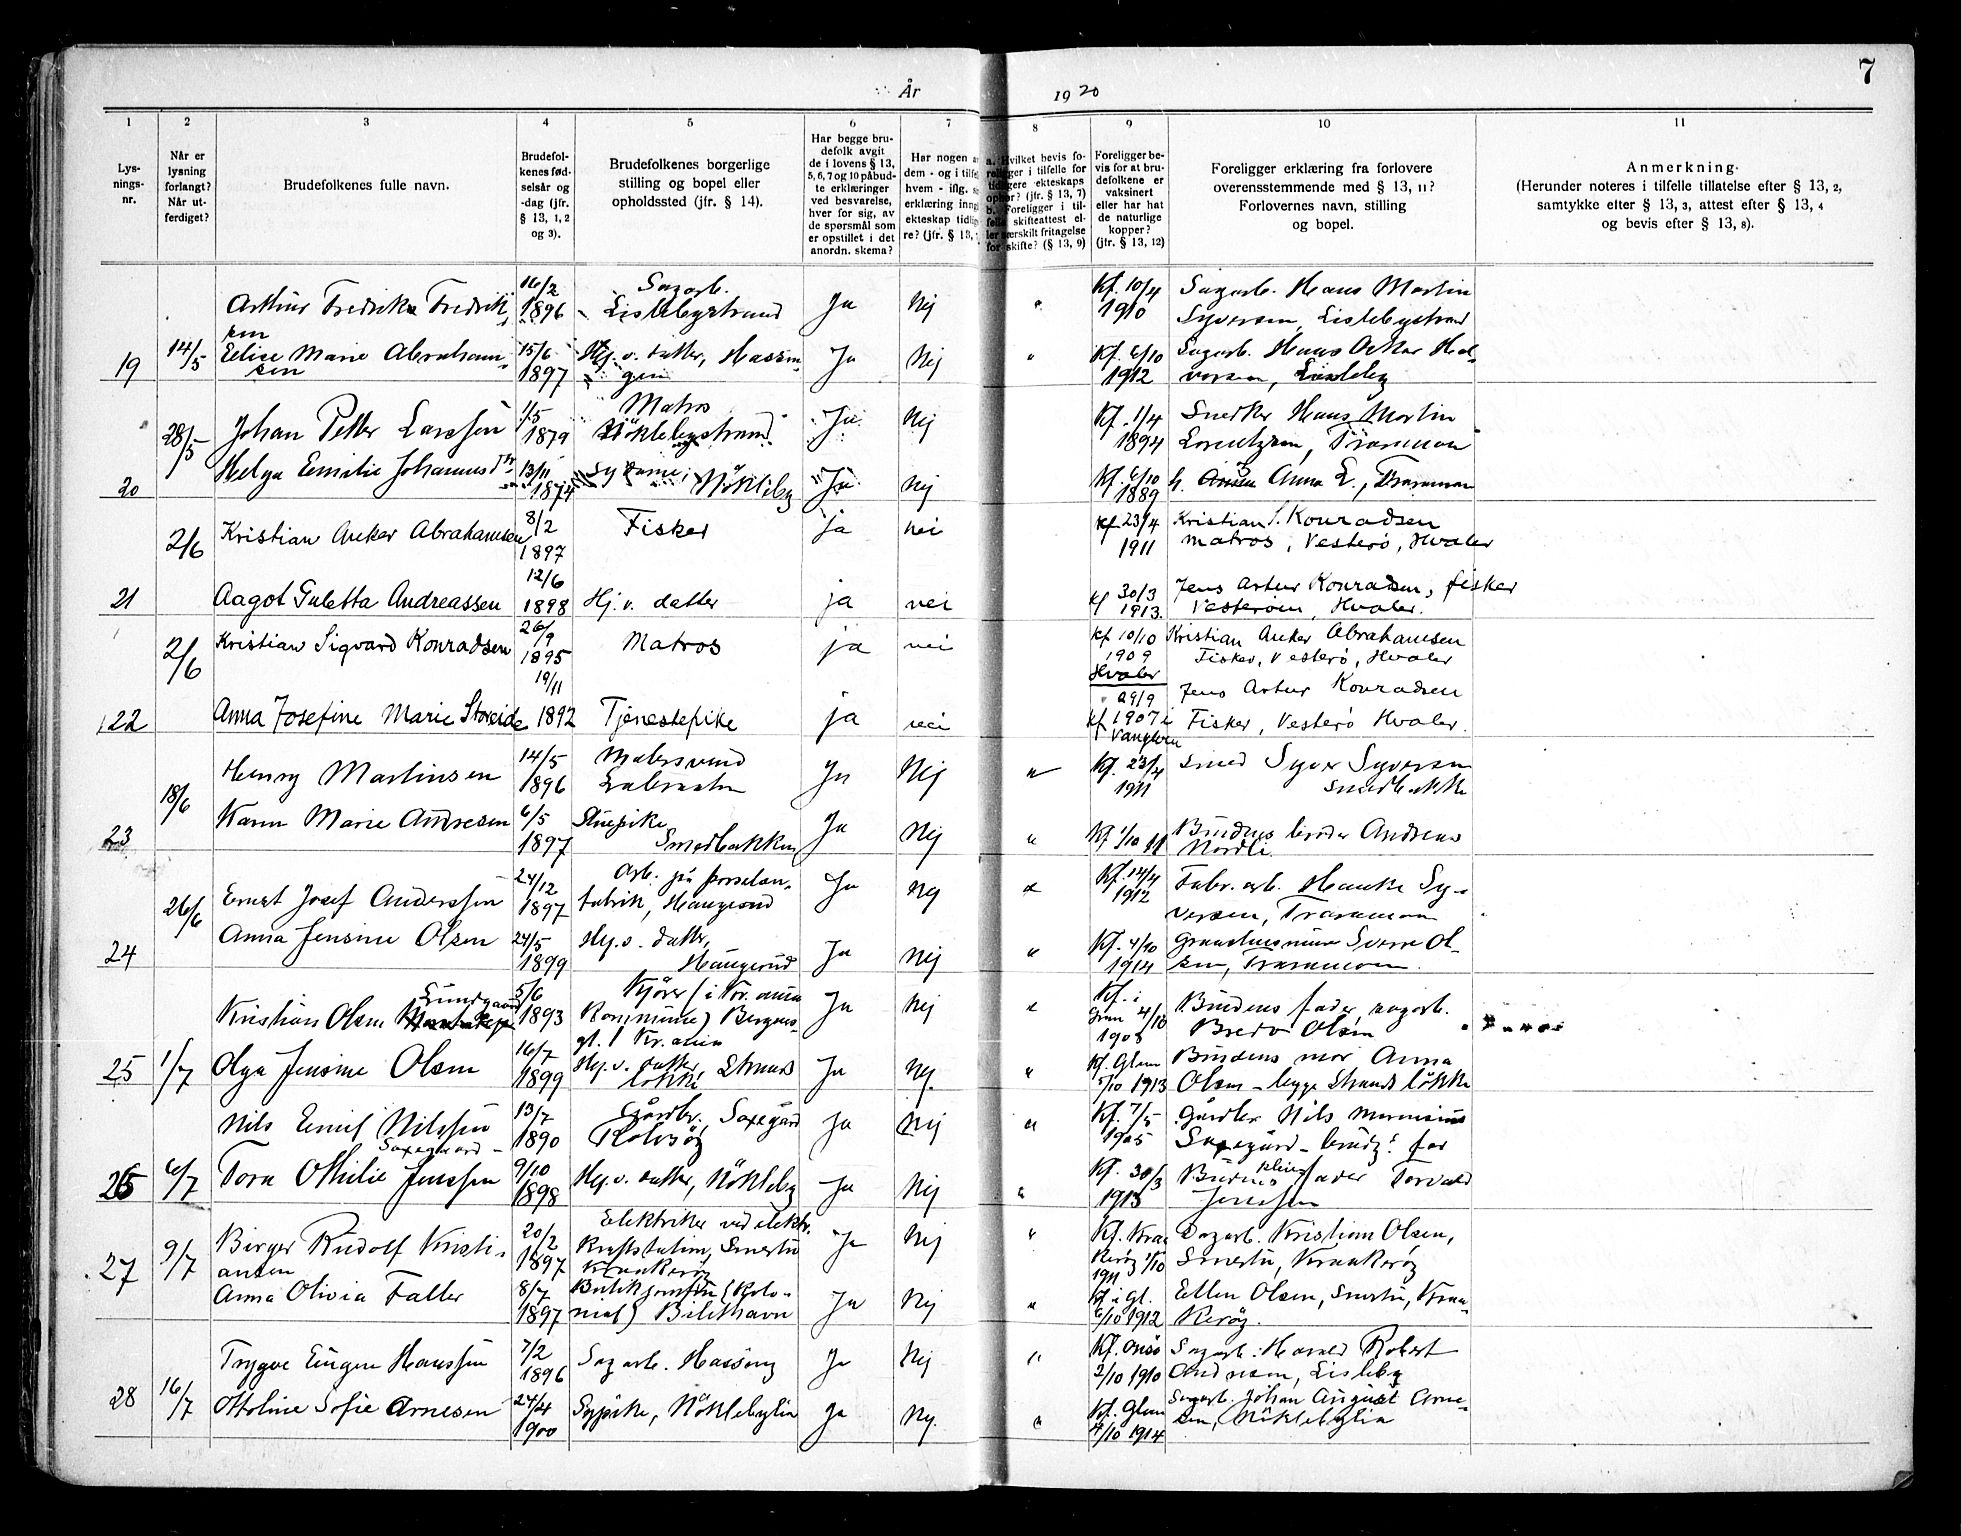 7
År 1920
1 2 3 4 5 6 7 8 9 10 11
Lysningsnr.
Når er lysning forlangt? Når utferdiget?
Brudefolkenes fulle navn.
Brudefolkenes fødselsår og -dag (jfr. § 13, 1, 2 og 3).
Brudefolkenes borgerlige stilling og bopel eller opholdssted (jfr. § 14).
Har begge brudefolk avgit de i lovens § 13, 5, 6, 7 og 10 påbudte erklæringer ved besvarelse, hver for sig, av de spørsmål som er opstillet i det anordn. skema?
Har nogen
dem - og i tilfel
hvem - iflg.
erklæring inng
ekteskap tidlig
re? (jfr. § 13,
Hvilket bevis fo-
religger i tilfelle for
tidligere ekteskaps
ophør? (jfr. § 13, 7)
b. Foreligger i til-
felle skifteattest el-
ler særskilt fritagelse
for skifte? (§ 13, 9)
Foreligger bevis for at brudefolkene er vaksinert eller har hat de naturlige kopper? (jfr. § 13, 12)
Foreligger erklæring fra forlovere overensstemmende med § 13, 11? Forlovernes navn, stilling og bopel.
Anmerkning.
(Herunder noteres i tilfelle tillatelse efter § 13, 2, samtykke efter § 13, 3, attest efter § 13, 4 og bevis efter § 13, 8).
19 14/5 Arthur Fredrik Fredriksen 16/2 1896 Sagarb. Lislebystrand Ja Nej " Kf. 10/4 1910 Sagarb. Hans Martin Syversen, Lislebystrand
Elise Marie Abrahamsen 15/6 1897 Hj. v. datter, Hassingen Ja Nej " Kf. 6/10 1912 Sagarb. Hans Oskar Halvorsen, Lisleby
20 28/5 Johan Petter Larssen 1/5 1879 Matros Nöklebystrand Ja Nej Kf. 1/4 1894 Snedker Hans Martin Lorentzen, Traramoen
Helga Emilie Johannesd 13/11 1874 Sydame, Nökleby Ja Nej Kf. 6/10 1889 Anna E., Traramoen
21 2/6 Kristian Anker Abrahamsen 8/2 1897 Fisker ja nei Kf 23/4 1911 Kristian S. Konradsen matros, Vesterø, Hvaler
Aagot Guletta Andreassen 12/6 1898 Hj. v. datter ja nei Kf 30/3 1913. Jens Artur Konradsen, fisker Vesterøen, Hvaler.
22 2/6 Kristian Sigvard Konradsen 26/9 1895 Matros ja nei Kf 10/10 1909 Hvaler Kristian Anker Abrahamsen Fisker, Vesterø, Hvaler
Anna Josefine Marie Storeide 19/11 1892 Tjenestepike ja nei Kf 29/9 1907 i Jens Artur Konradsen Fisker, Vesterø Hvaler.
23 18/6 Henry Martinsen 14/5 1896 Malersvend Ja Nej " Kf. 23/4 1911 Smed Syver Syversen Smedbakken
Karen Marie Andresen 6/5 1897 Stuepike Smedbakken Ja Nej " Kf 1/10 11 Brudens broder Andreas Nordli
24 26/6 Ernst Josef Anderssen 24/12 1897 Arb. på porselanfabrik, Haugerud Ja Nej " Kf. 14/4 1912 Fabr. arb. Hauke Syversen, Traramoen
Anna Jensine Olsen 24/5 1899 Hj. v. datter, Haugerud Ja Nej " Kf. 4/10 1914 Sverre Olsen, Traramoen.
25 1/7 Kristian Olsen Lundgaard 5/6 1893 Kjører (i Kr.ania Kommune) Bergensgt. 1 Kr.ania Ja Nej " Kf. i Gran 4/10 1908 Brudens fader, sagarb. Bredo Olsen
Olga Jensine Olsen 16/7 1899 Hj. v. datter, Strands løkke Ja Nej. " Kf. Glem 5/10 1913 Brudens mor Anna Olsen - begge Strands løkke
26 6/7 Nils Emil Nilssen Saxegaard - 13/7 1890 Gårdbr. Saxegård Rolvsøy Ja Nej " Kf. 7/5 1905 Gårdbr. Nils Marensius Saxegård - brudg.s far
Tora Othilie Jenssen 9/10 1898 Hj. v. datter, Nökleby Ja Nej " Kf. 30/3 1913 Brudens fader Torvald Jenssen
27 9/7 Birger Rudolf Kristiansen 20/2 1897 Elektriker ved elektr. Kraftstation, Smertu Kraakerøy Ja Nej " Kf. Kraakerøy 1/10 1911 Dagarb. Kristian Olsen, Smertu, Kraakerøy
Anna Olivia Faller 8/7 1897 Butikjomfru (Kolonial) Bilethavn Ja Nej " Kf i Gl. 6/10 1912 Ellen Olsen, Smertu, Kraakerøy.
28 16/7 Trygve Eugen Hanssen 7/2 1896 Sagarb. Hassing Ja Nej " Kf. Onsø 2/10 1910 Sagarb. Harald Robert Andresen, Lisleby
Otteline Sofie Arnesen 24/4 1900 Sypike, Nöklebylia Ja Nej. " Kf. Glem 4/10 1914 Sagarb. Johan August Arnesen, Nöklebylia